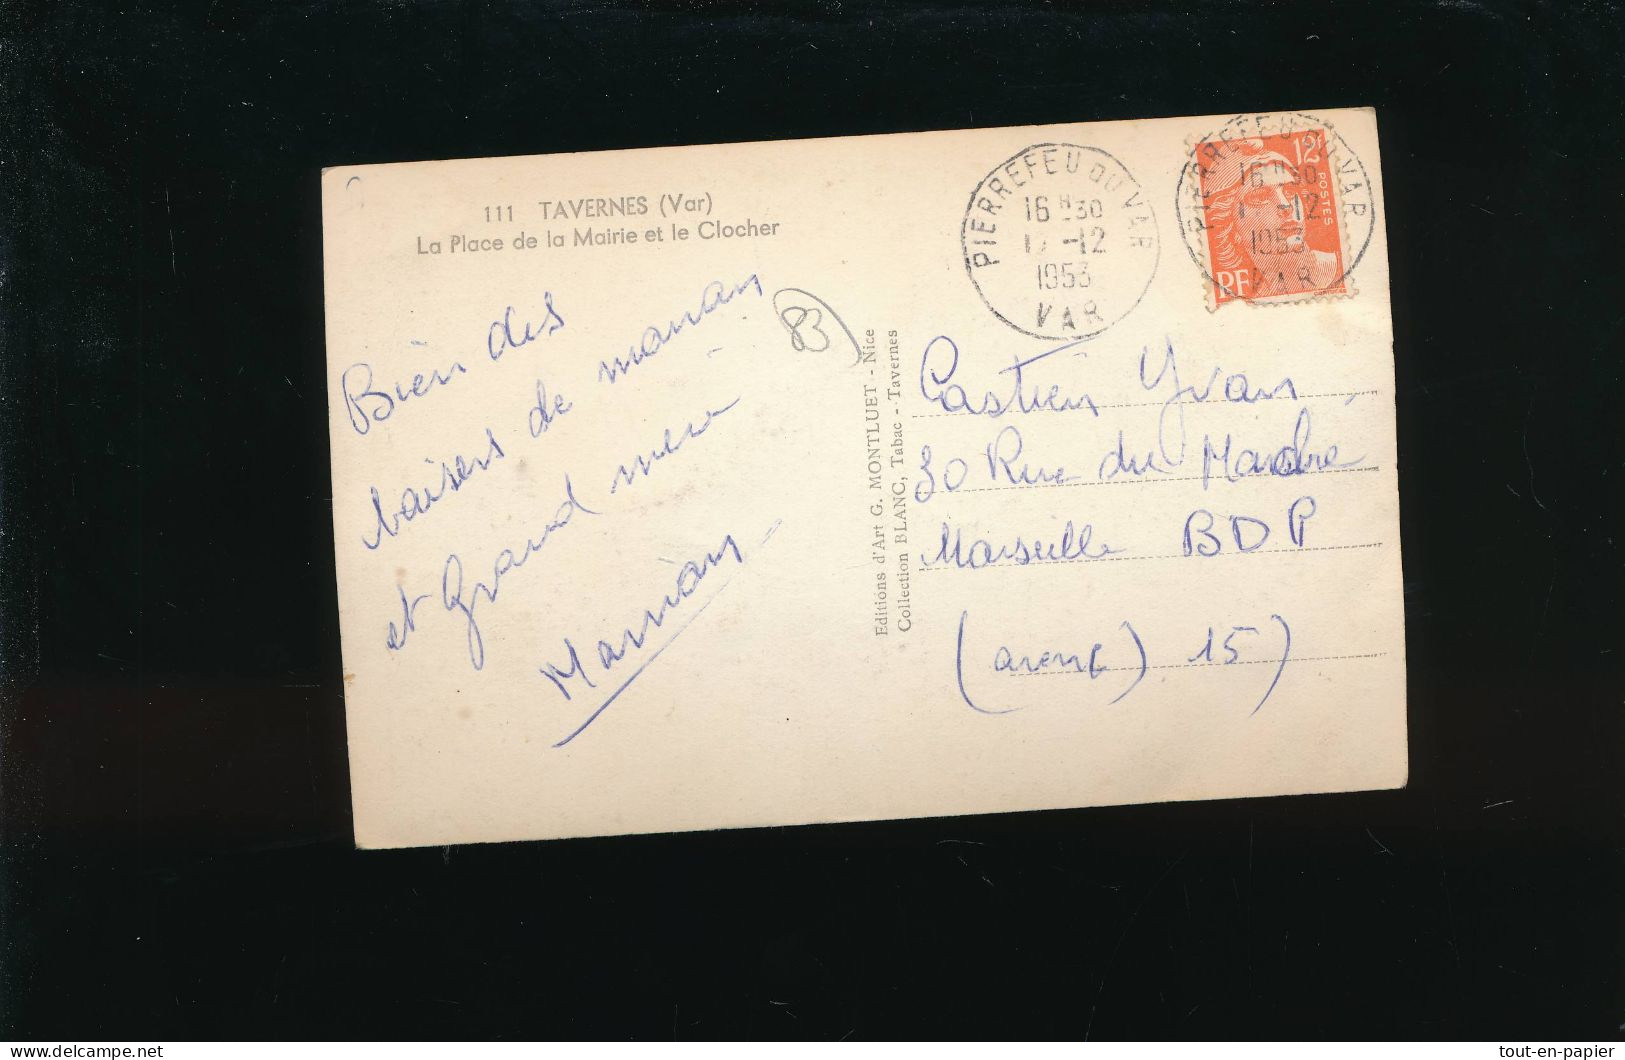 111 TAVERNES (Var)
La Place de la Mairie et le Clocher
Bien des
baisers de maman
et Grand mere
83
Editions d'Art G. MONTLUET - Nice
Collection BLANC, Tabac - Tavernes
PIERREFEU DU VAR
16 H 30
-12
1953
VAR
PIERREFEU DU VAR
16 H 30
-12
1953
VAR
12F
POSTES
RF
Castien Yvan
30 Rue du Marché
Marseille BDP
(arenc) 15)
delcampe.net
tout-en-papier